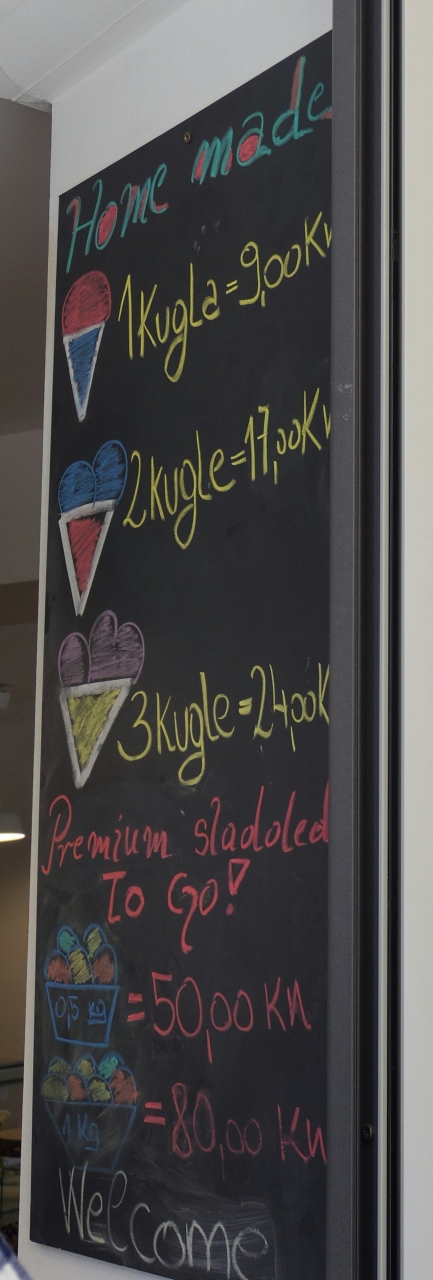 Home made
1 Kugla = 9,00 Kn
2 kugle = 17,00 Kn
3 kugle = 24,00 K
Premium sladoled
To Go!
0,5 kg = 50,00 Kn
1 Kg = 80,00 Kn
Welcome